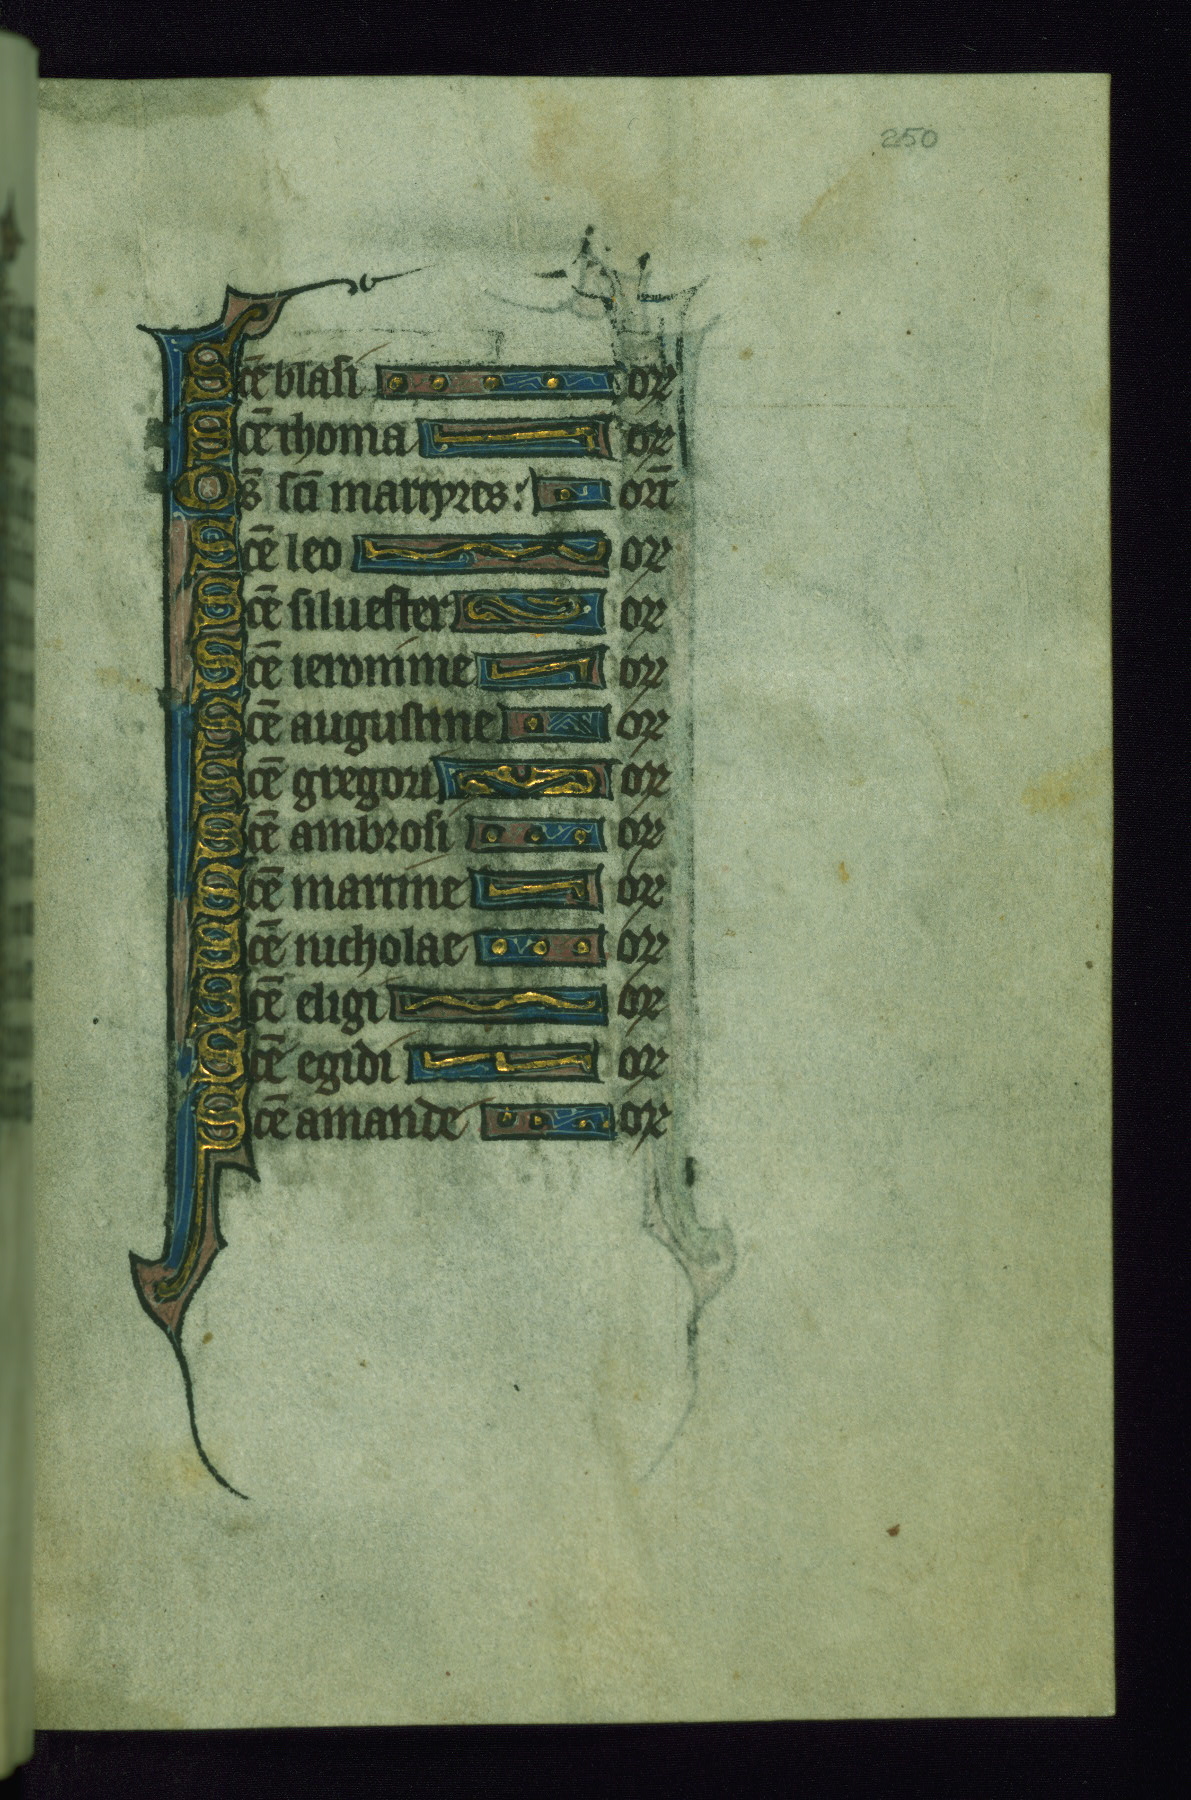 250
Scē blasi or
Scē thoma or
Om̄s sc̄i martyres: or̄t
Scē leo or
Scē siluester or
Scē ieronime or
Scē augustine or
Scē gregori or
Scē ambrosi or
Scē martine or
Scē nicholae or
Scē eligi or
Scē egidi or
Scē amande or